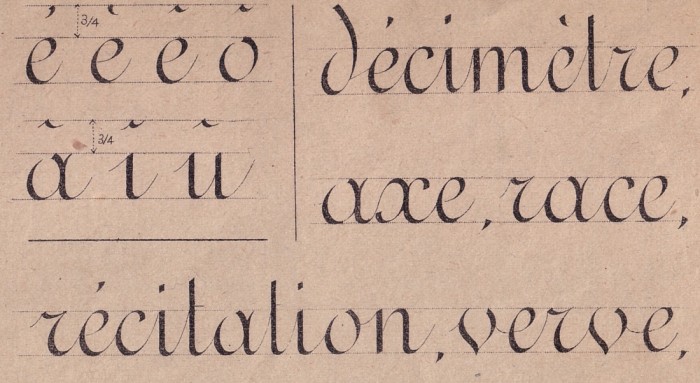 3/4
é è ê ô
3/4
â î û
décimètre,
axe, race,
récitation, verve,